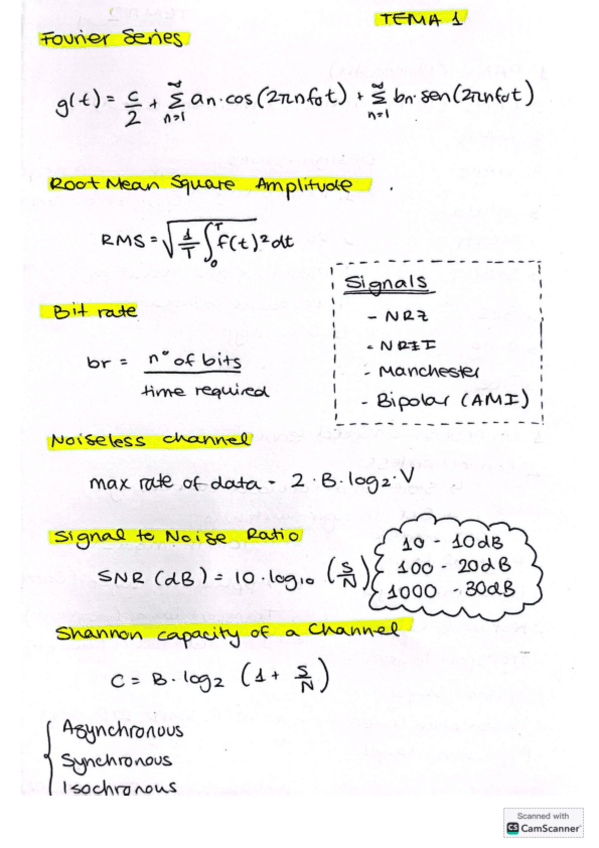 TEMA 1
Fourier Series
g(t) = c/2 + ∞Σn=1 an·cos(2πnf0t) + ∞Σn=1 bn·sen(2πnf0t)
Root Mean Square Amplitude
RMS = √(1/T ∫0T f(t)² dt)
Signals
- NRZ
- NRZI
- Manchester
- Bipolar (AMI)
Bit rate
br = nº of bits / time required
Noiseless channel
max rate of data - 2·B·log2·V
Signal to Noise Ratio
SNR (dB) = 10·log10 (S/N)
10 - 10dB
100 - 20dB
1000 - 30dB
Shannon capacity of a Channel
C = B·log2 (1 + S/N)
Asynchronous
Synchronous
Isochronous
Scanned with
CS CamScanner